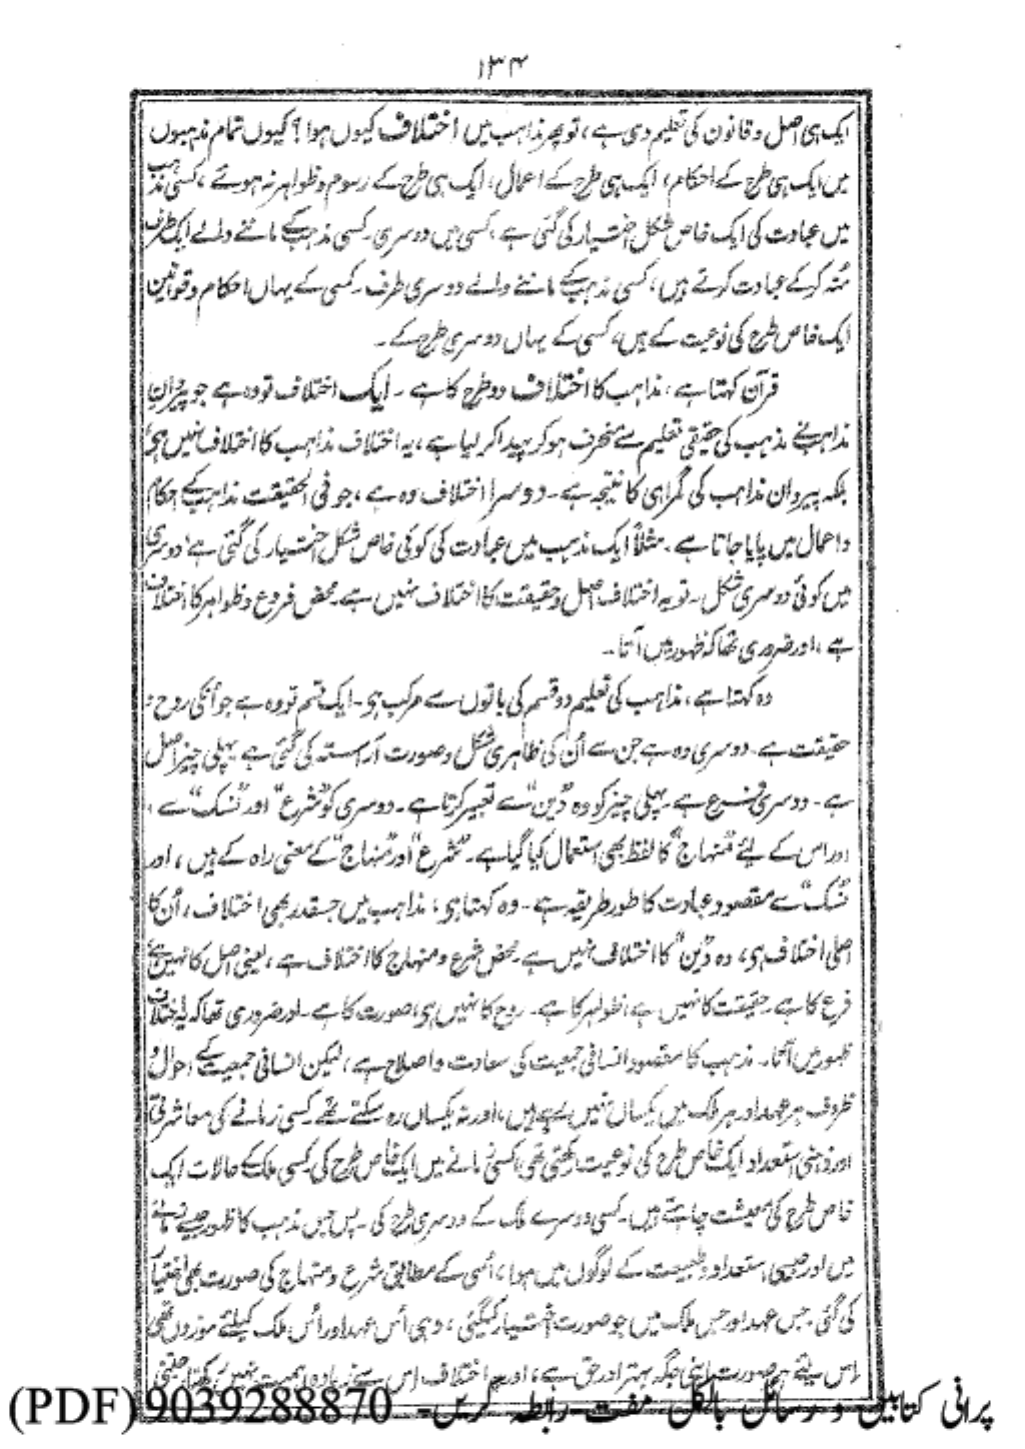 ۱۳۴
ایک ہی اصل و قانون کی تعلیم دی ہے، تو پھر مذاہب میں اختلاف کیوں ہوا؟ کیوں تمام مذہبوں
میں ایک ہی طرح کے احکام، ایک ہی طرح کے اعمال، ایک ہی طرح کے رسوم و ظواہر نہ ہوئے، کسی مذہب
میں عبادت کی ایک خاص شکل اختیار کی گئی ہے، کسی میں دوسری۔ کسی مذہب کے ماننے والے ایک طرف
مُنہ کرکے عبادت کرتے ہیں، کسی مذہب کے ماننے والے دوسری طرف۔ کسی کے یہاں احکام و قوانین
ایک خاص طرح کی نوعیت کے ہیں، کسی کے یہاں دوسری طرح کے۔
قرآن کہتا ہے، مذاہب کا اختلاف دو طرح کا ہے۔ ایک اختلاف تو وہ ہے جو پیروانِ
مذاہب نے مذہب کی حقیقی تعلیم سے منحرف ہوکر پیدا کر لیا ہے، یہ اختلاف مذاہب کا اختلاف نہیں ہی
بلکہ پیروان مذاہب کی گمراہی کا نتیجہ ہے۔ دوسرا اختلاف وہ ہے، جو فی الحقیقت مذاہب کے احکام
و اعمال میں پایا جاتا ہے۔ مثلاً ایک مذہب میں عبادت کی کوئی خاص شکل اختیار کی گئی ہے، دوسری
میں کوئی دوسری شکل۔ تو یہ اختلاف اصل و حقیقت کا اختلاف نہیں ہے۔ محض فروع و ظواہر کا اختلاف
ہے، اور ضروری تھا کہ ظہور میں آتا۔
وہ کہتا ہے، مذاہب کی تعلیم دو قسم کی باتوں سے مرکب ہی۔ ایک قسم تو وہ ہے جو اُنکی روح و
حقیقت ہے۔ دوسری وہ ہے جن سے اُن کی ظاہری شکل و صورت آراستہ کی گئی ہے۔ پہلی چیز اصل
ہے۔ دوسری فرع ہے۔ پہلی چیز کو وہ "دین" سے تعبیر کرتا ہے۔ دوسری کو "شرع" اور "نسک" سے،
اور اس کے لیے "منہاج" کا لفظ بھی استعمال کیا گیا ہے۔ "شرع" اور "منہاج" کے معنی راہ کے ہیں، اور
"نسک" سے مقصود عبادت کا طور طریقہ ہے۔ وہ کہتا ہی، مذاہب میں جسقدر بھی اختلاف، اُن کا
اصلی اختلاف ہی، وہ "دین" کا اختلاف نہیں ہے۔ محض شرع و منہاج کا اختلاف ہے، یعنی اصل کا نہیں ہے
فرع کا ہے۔ حقیقت کا نہیں ہے، ظواہر کا ہے۔ روح کا نہیں ہی، صورت کا ہے۔ اور ضروری تھا کہ یہ اختلاف
ظہور میں آتا۔ مذہب کا مقصود انسانی جمعیت کی سعادت و اصلاح ہے، لیکن انسانی جمعیت کے احوال و
ظروف ہر عہد اور ہر ملک میں یکساں نہیں رہے ہیں، اور نہ یکساں رہ سکتے تھے۔ کسی زمانے کی معاشرتی
اور ذہنی استعداد ایک خاص طرح کی نوعیت رکھتی تھی، کسی زمانے میں ایک خاص طرح کی کسی ملک کے حالات ایک
خاص طرح کی معیشت چاہتے ہیں۔ کسی دوسرے ملک کے دوسری طرح کی۔ پس جس مذہب کا ظہور جیسے زمانے
میں اور جیسی استعداد و طبیعت کے لوگوں میں ہوا، اُسی کے مطابق شرع و منہاج کی صورت بھی اختیار
کی گئی۔ جس عہد اور جس ملک میں جو صورت اختیار کیگئی، وہی اُس عہد اور اُس ملک کیلئے موزوں تھی
اس لیئے ہر صورت اپنی جگہ بہتر اور حق ہے، اور یہ اختلاف اس سے زیادہ اہمیت نہیں رکھتا جتنی
پرانی کتابیں و رسائل بالکل مفت۔ رابطہ کریں۔ 9039288870 (PDF)